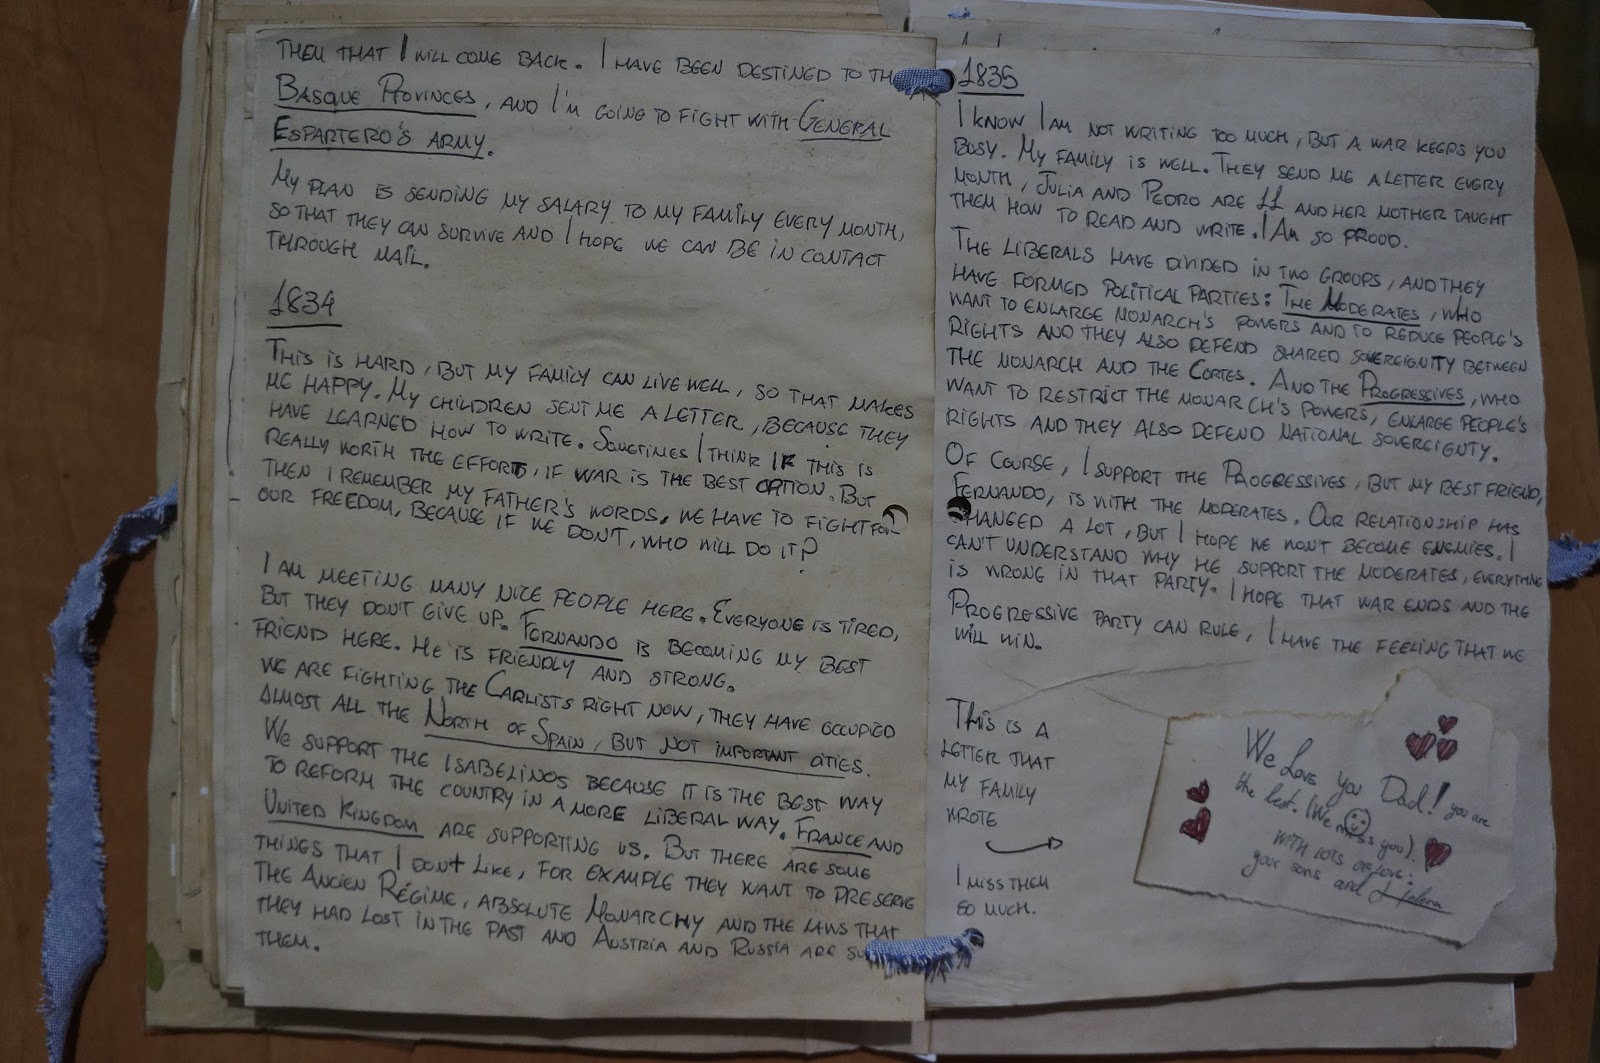 THEM THAT I WILL COME BACK. I HAVE BEEN DESTINED TO TH
BASQUE PROVINCES, AND I'M GOING TO FIGHT WITH GENERAL
ESPARTERO'S ARMY.
MY PLAN IS SENDING MY SALARY TO MY FAMILY EVERY MONTH,
SO THAT THEY CAN SURVIVE AND I HOPE WE CAN BE IN CONTACT
THROUGH MAIL.
1834
THIS IS HARD, BUT MY FAMILY CAN LIVE WELL, SO THAT MAKES
ME HAPPY. MY CHILDREN SENT ME A LETTER, BECAUSE THEY
HAVE LEARNED HOW TO WRITE. SOMETIMES I THINK IF THIS IS
REALLY WORTH THE EFFORT, IF WAR IS THE BEST OPTION. BUT
THEN I REMEMBER MY FATHER'S WORDS. WE HAVE TO FIGHT FOR
OUR FREEDOM, BECAUSE IF WE DON'T, WHO WILL DO IT?
I AM MEETING MANY NICE PEOPLE HERE. EVERYONE IS TIRED,
BUT THEY DON'T GIVE UP. FERNANDO IS BECOMING MY BEST
FRIEND HERE. HE IS FRIENDLY AND STRONG.
WE ARE FIGHTING THE CARLISTS RIGHT NOW, THEY HAVE OCCUPIED
ALMOST ALL THE NORTH OF SPAIN, BUT NOT IMPORTANT CITIES.
WE SUPPORT THE ISABELINOS BECAUSE IT IS THE BEST WAY
TO REFORM THE COUNTRY IN A MORE LIBERAL WAY. FRANCE AND
UNITED KINGDOM ARE SUPPORTING US. BUT THERE ARE SOME
THINGS THAT I DON'T LIKE, FOR EXAMPLE THEY WANT TO PRESERVE
THE ANCIEN RÉGIME, ABSOLUTE MONARCHY AND THE LAWS THAT
THEY HAD LOST IN THE PAST AND AUSTRIA AND RUSSIA ARE SU
THEM.
1835
I KNOW I AM NOT WRITING TOO MUCH, BUT A WAR KEEPS YOU
BUSY. MY FAMILY IS WELL. THEY SEND ME A LETTER EVERY
MONTH, JULIA AND PEDRO ARE 11 AND HER MOTHER TAUGHT
THEM HOW TO READ AND WRITE. I AM SO PROUD.
THE LIBERALS HAVE DIVIDED IN TWO GROUPS, AND THEY
HAVE FORMED POLITICAL PARTIES: THE MODERATES, WHO
WANT TO ENLARGE MONARCH'S POWERS AND TO REDUCE PEOPLE'S
RIGHTS AND THEY ALSO DEFEND SHARED SOVEREIGNITY BETWEEN
THE MONARCH AND THE CORTES. AND THE PROGRESSIVES, WHO
WANT TO RESTRICT THE MONARCH'S POWERS, ENLARGE PEOPLE'S
RIGHTS AND THEY ALSO DEFEND NATIONAL SOVEREIGNTY.
OF COURSE, I SUPPORT THE PROGRESSIVES, BUT MY BEST FRIEND,
FERNANDO, IS WITH THE MODERATES. OUR RELATIONSHIP HAS
CHANGED A LOT, BUT I HOPE WE WON'T BECOME ENEMIES. I
CAN'T UNDERSTAND WHY HE SUPPORT THE MODERATES, EVERYTHING
IS WRONG IN THAT PARTY. I HOPE THAT WAR ENDS AND THE
PROGRESSIVE PARTY CAN RULE, I HAVE THE FEELING THAT WE
WILL WIN.
THIS IS A
LETTER THAT
MY FAMILY
WROTE
I MISS THEM
SO MUCH.
We Love you Dad! you are
the best. (We miss you).
WITH LOTS OF LOVE:
your sons and Helena